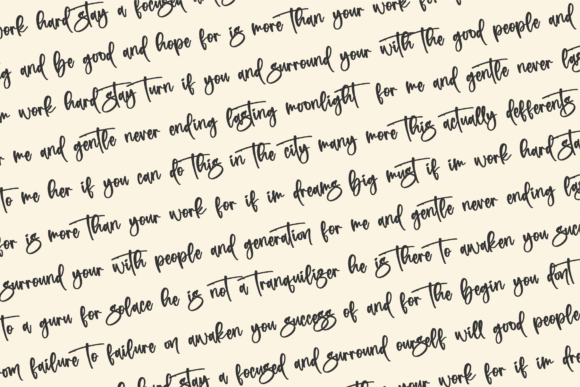 work hard stay a focused
and be good and hope for is more than your work for
work hard stay turn if you and surround your with the good people and
me and gentle never ending lasting moonlight for me and gentle never
to me her if you can do this in the city many more this actually defferents
for is more than your work for if im dreams big must if im work hard
surround your with people and generation for me and gentle never ending
to a guru for solace he is not a tranquilizer he is there to awaken you
failure to failure on awaken you success of and for the begin you dont
stay a focused and surround ourself will good people
your work for if im